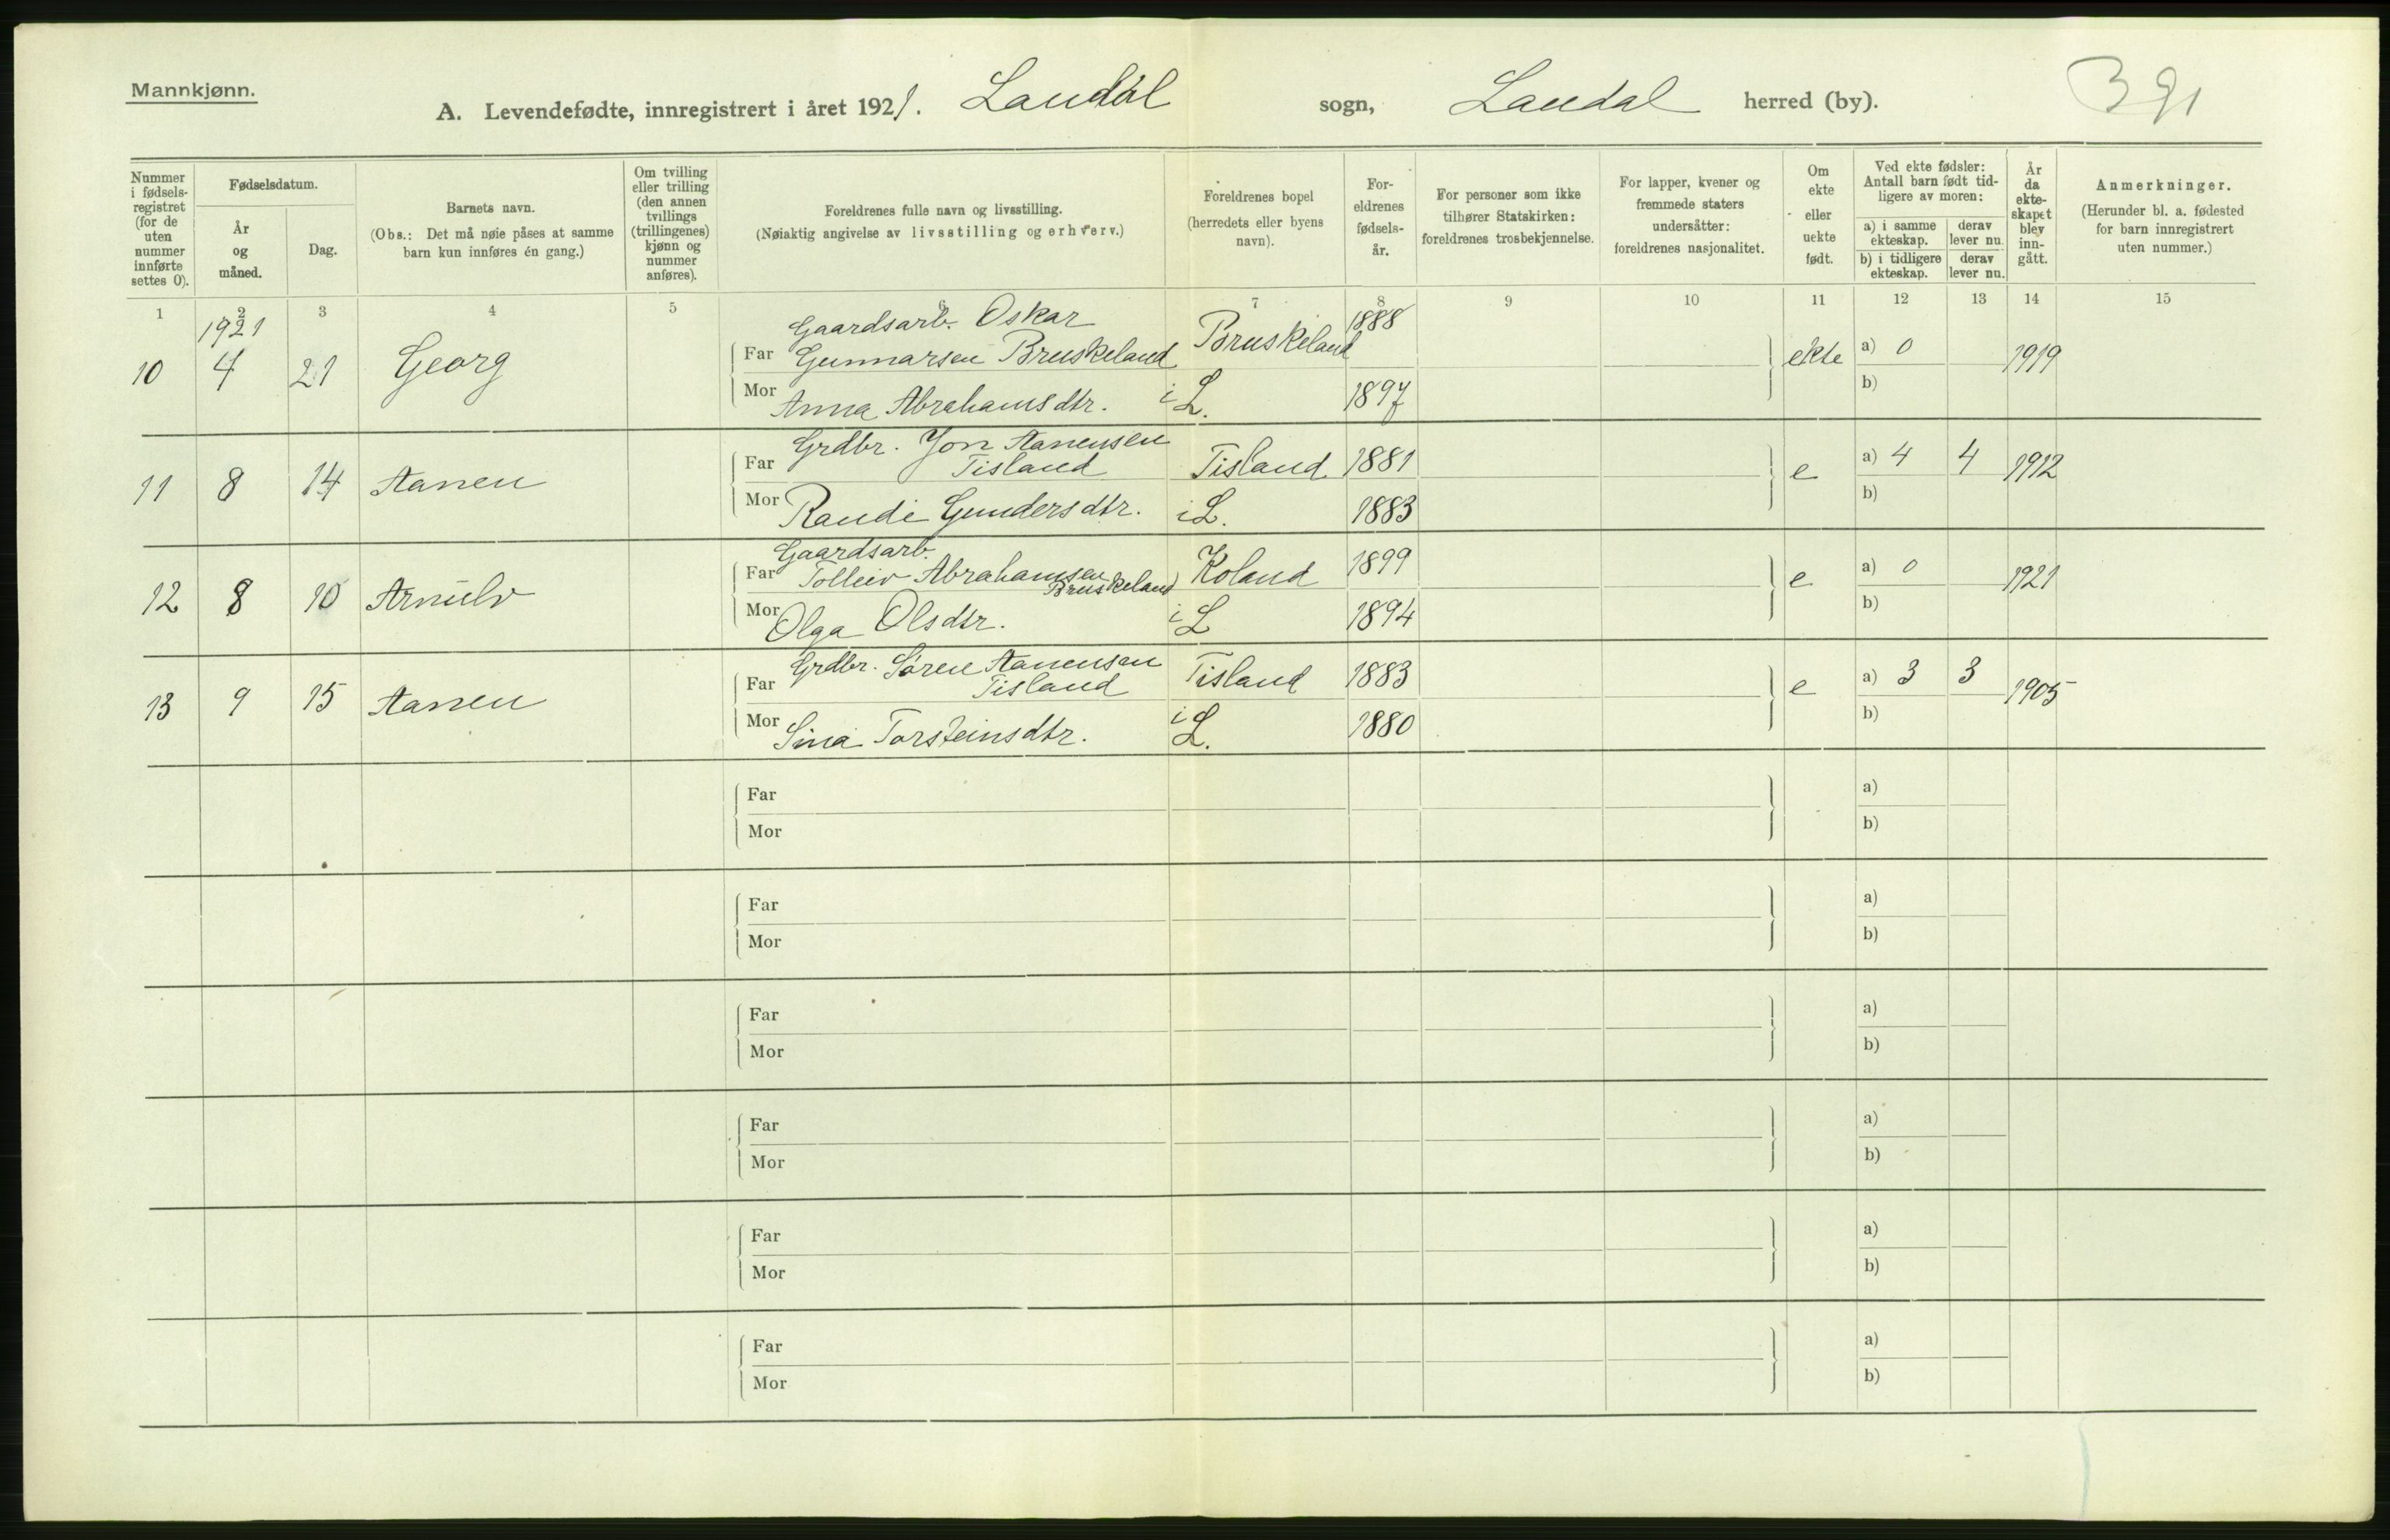 Mannkjønn.
A. Levendefødte, innregistrert i året 1921. Laudal sogn, Laudal herred (by).
391
Nummer i fødsels-registret (for de uten nummer innførte settes 0).
Fødselsdatum.
År og måned.
Dag.
Barnets navn.
(Obs.: Det må nøie påses at samme barn kun innføres én gang.)
Om tvilling eller trilling (den annen tvillings (trillingenes) kjønn og nummer anføres).
Foreldrenes fulle navn og livsstilling.
(Nøiaktig angivelse av livsstilling og erhverv.)
Foreldrenes bopel (herredets eller byens navn).
For-eldrenes fødsels-år.
For personer som ikke tilhører Statskirken: foreldrenes trosbekjennelse.
For lapper, kvener og fremmede staters undersåtter: foreldrenes nasjonalitet.
Om ekte eller uekte født.
Ved ekte fødsler: Antall barn født tid-ligere av moren:
a) i samme ekteskap.
derav lever nu.
b) i tidligere ekteskap.
derav lever nu.
År da ekte-skapet blev inn-gått.
Anmerkninger.
(Herunder bl. a. fødested for barn innregistrert uten nummer.)
1 2 3 4 5 6 7 8 9 10 11 12 13 14 15
1921
Gaardsarb. Oskar
10 4 21 Georg Far Gunnarsen Bruskeland Bruskeland 1888 ekte a) 0 1919
Mor Anna Abrahamsdtr. i L. 1897 b)
Grdbr. Jon Aanensen
11 8 14 Aanen Far Tisland Tisland 1881 e a) 4 4 1912
Mor Randi Gundersdtr. i L. 1883 b)
Gaardsarb.
12 8 10 Arnulv Far Tolleiv Abrahamsen Bruskeland Koland 1899 e a) 0 1921
Mor Olga Olsdtr. i L 1894 b)
Grdbr. Søren Aanensen
13 9 15 Aanen Far Tisland Tisland 1883 e a) 3 3 1905
Mor Sina Torsteinsdtr. i L. 1880 b)
Far a)
Mor b)
Far a)
Mor b)
Far a)
Mor b)
Far a)
Mor b)
Far a)
Mor b)
Far a)
Mor b)